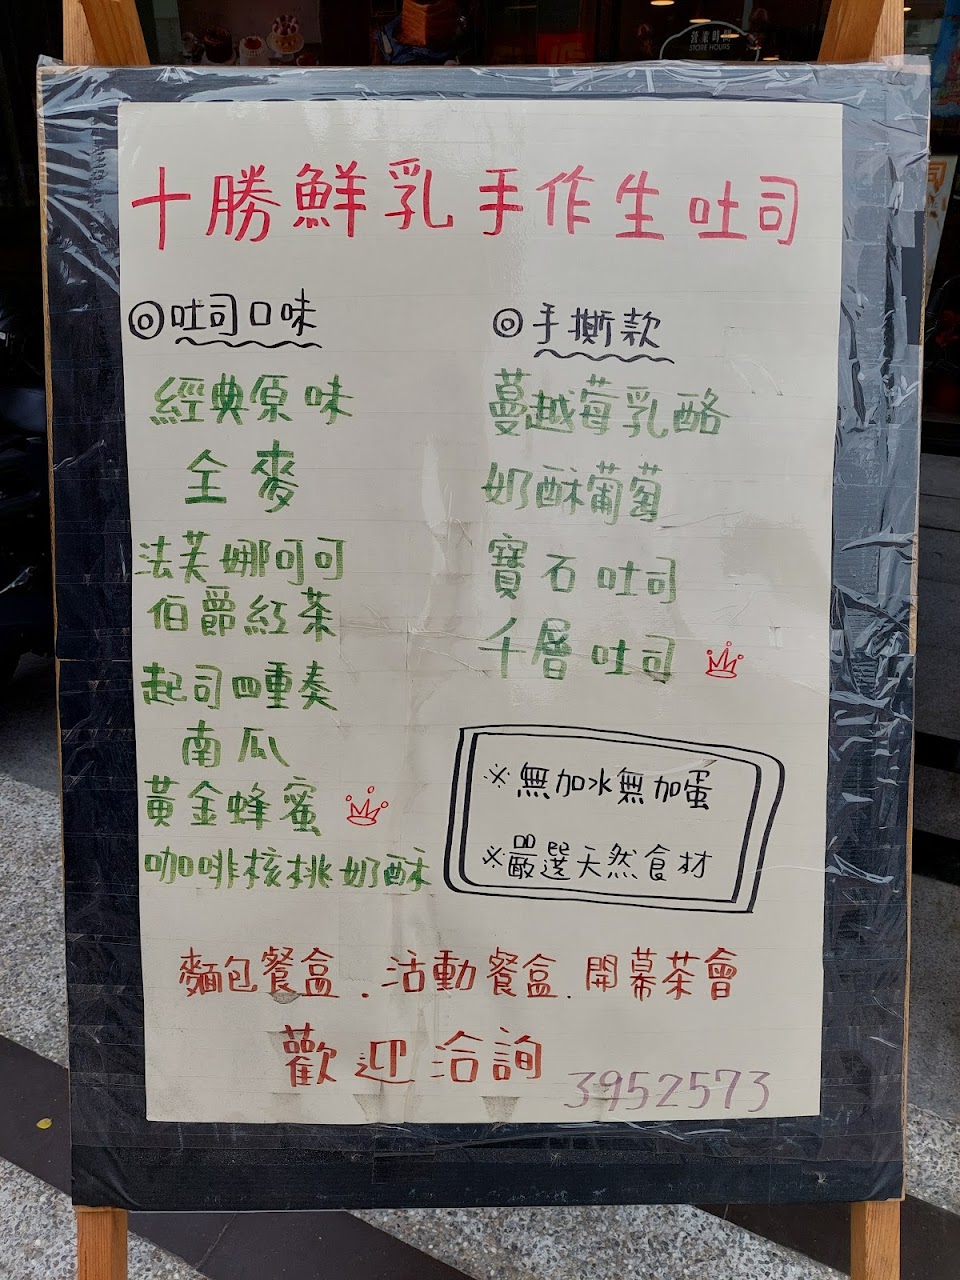 營業時間
STORE HOURS
十勝鮮乳手作生吐司
◎吐司口味
經典原味
全麥
法芙娜可可
伯爵紅茶
起司四重奏
南瓜
黃金蜂蜜
咖啡核桃奶酥
◎手撕款
蔓越莓乳酪
奶酥葡萄
寶石吐司
千層吐司
※無加水無加蛋
※嚴選天然食材
麵包餐盒.活動餐盒.開幕茶會
歡迎洽詢
3952573